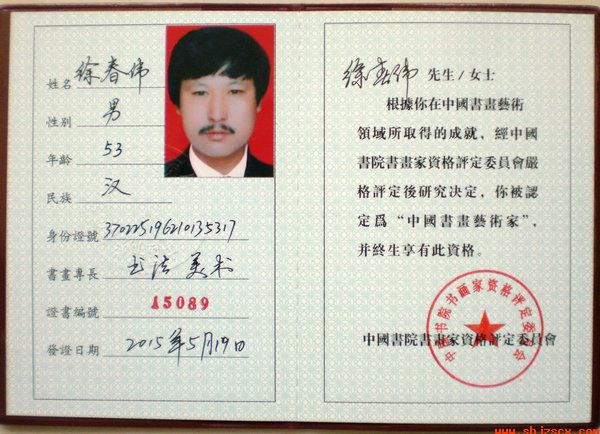 姓名 徐春伟
性别 男
年龄 53
民族 汉
身份證號 370225196210135317
書畫專長 书法 美术
證書編號 15089
發證日期 2015年5月19日
徐春伟 先生/女士
根據你在中國書畫藝術
領域所取得的成就，經中國
書院書畫家資格評定委員會嚴
格評定後研究决定，你被認
定爲“中國書畫藝術家”，
并終生享有此資格。
中國書院書畫家資格評定委員會
中国书院书画家资格评定委员会
www.shjzscx.com